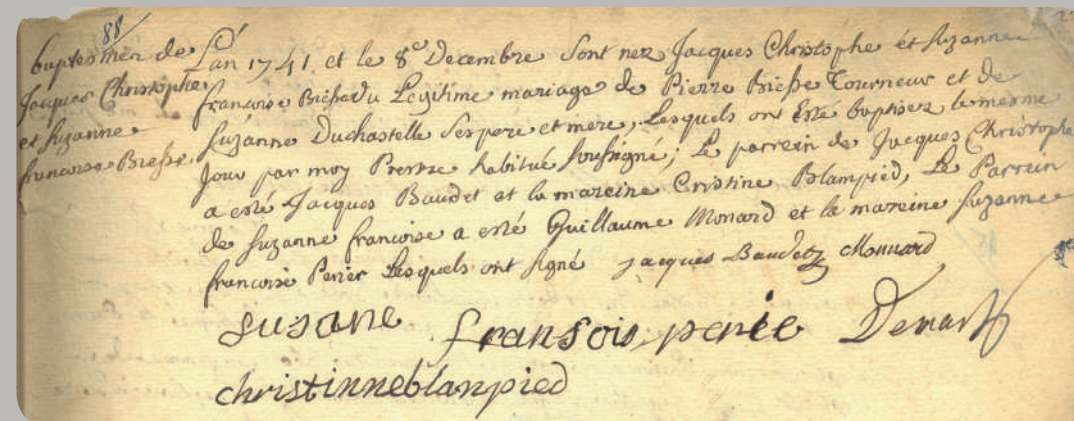 88
baptesmen de
Jacques Christophe
et Suzanne
francoise Biesse
L'an 1741 et le 8e Decembre sont nez Jacques Christophe et Suzanne
francoise Biesse du Legitime mariage de Pierre Biesse Tourneur et de
Suzanne Duchastelle ses pere et mere, Lesquels ont Esté baptisez le mesme
Jour par moy Prertre habitué soussigné; Le parrein de Jacques Christophe
a esté Jacques Baudet et la mareine Cristine Blampied, Le Parrein
de Suzanne francoise a esté Guillaume Monard et la mareine Suzanne
francoise Perier Lesquels ont signé jacques Baudet Monnard
susane fransois perie
christinneblanpied